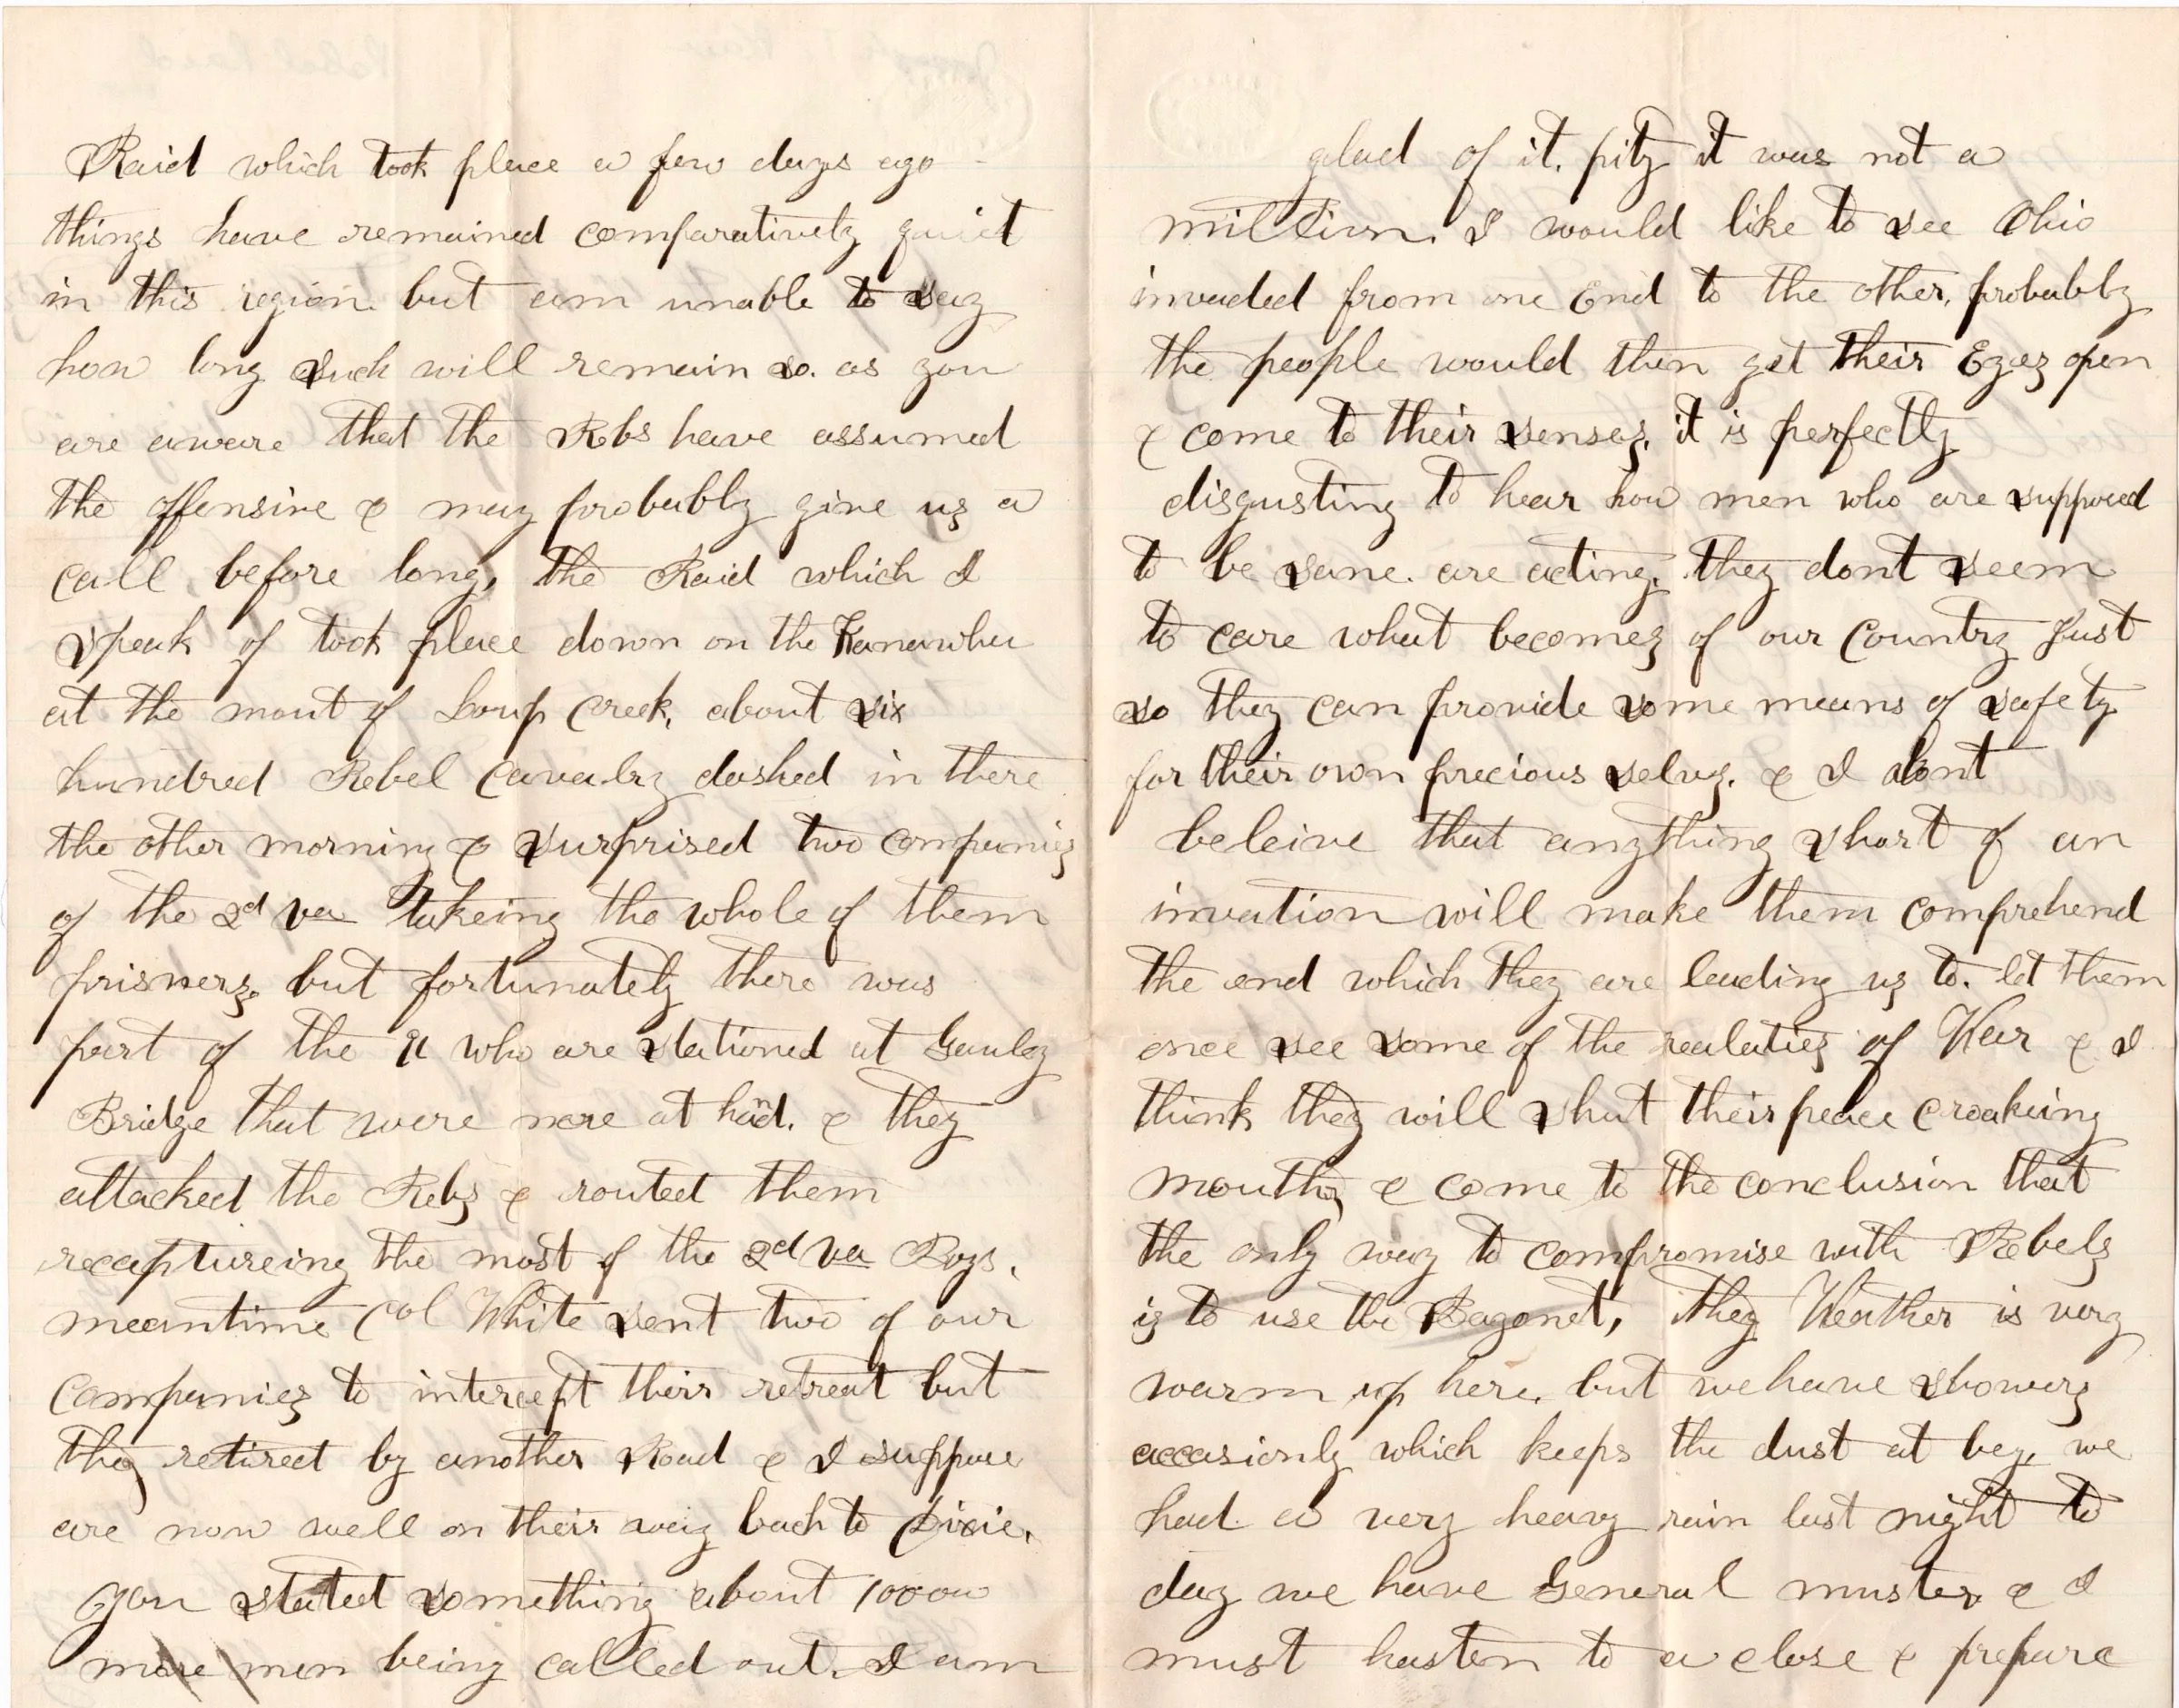 Raid which took place a few days ago
things have remained comparatively quiet
in this region. but am unable to say
how long such will remain so. as you
are aware that the Rebs have assumed
the offensive & may probably give us a
call before long, the Raid which I
speak of took place down on the Kanawha
at the mout of Loup Creek, about six
hundred Rebel Cavalry dashed in there
the other morning & surprised two companies
of the 2d va takeing the whole of them
prisners, but fortunately there was
part of the 91 who are stationed at Gauley
Bridge that were nere at hand. & they
attacked the Rebs & routed them
recaptureing the most of the 2d va Boys.
meantime Col White sent two of our
Companies to intercept their retreat but
they retired by another Road & I suppose
are now well on their way back to Dixie.
you stated something about 10000
more men being called out. I am
glad of it. pity it was not a
million. I would like to see Ohio
invaded from one End to the other. probably
the people would then get their Eyes open
& come to their senses. it is perfectly
disgusting to hear how men who are supposed
to be sane. are acting. they dont seem
to care what becomes of our Country Just
so they can provide some means of safety
for their own precious selvs. & I dont
beleive that anything short of an
invation will make them comprehend
the end which they are leading us to. let them
once see some of the realaties of War & I
think they will shut their peace croakeing
mouths & come to the conclusion that
the only way to compromise with Rebels
is to use the Bayonet, they Weather is very
warm up here. but we have showers
accasionly which keeps the dust at bay, we
had a very heavy rain last night to
day we have General muster & I
must hasten to a close & prepare